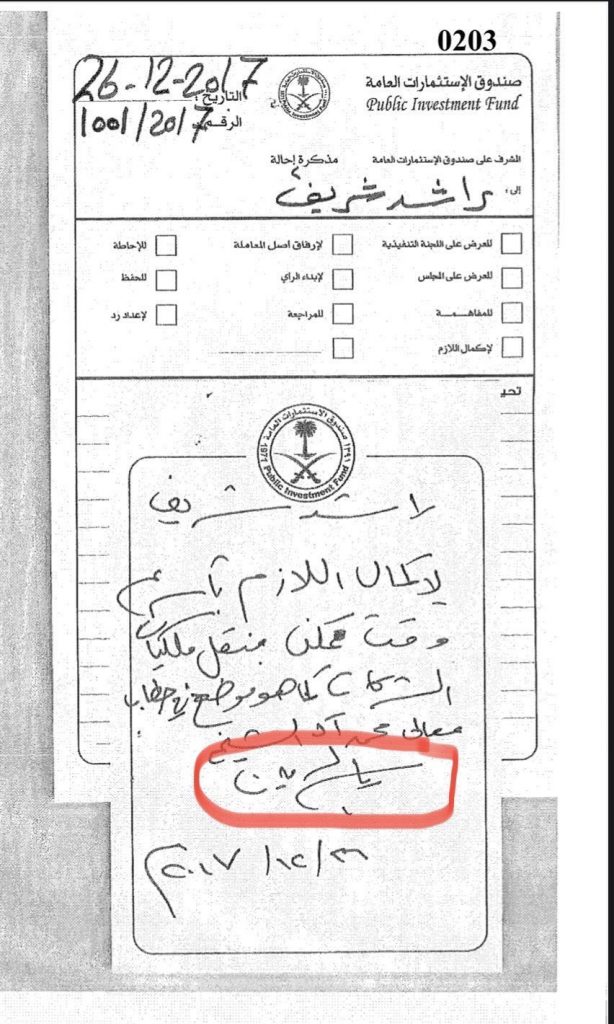 0203
صندوق الإستثمارات العامة
Public Investment Fund
التاريخ: 26-12-2017
الرقم: 1001/2017
المشرف على صندوق الإستثمارات العامة
مذكرة إحالة
إلى: راشد شريف
للعرض على اللجنة التنفيذية
لإرفاق أصل المعاملة
للإحاطة
للعرض على المجلس
لإبداء الرأي
للحفظ
للمفاهمة
للمراجعة
لإعداد رد
لإكمال اللازم
تحيـ
صندوق الاستثمارات العامة
Public Investment Fund
راشد شريف
لإكمال اللازم بأسرع
وقت ممكن بنقل ملكيات
الشركات كما هو موضح في خطاب
معالي محمد آل الشيخ
ياسر
٢٠١٧/١٢/٢٦م